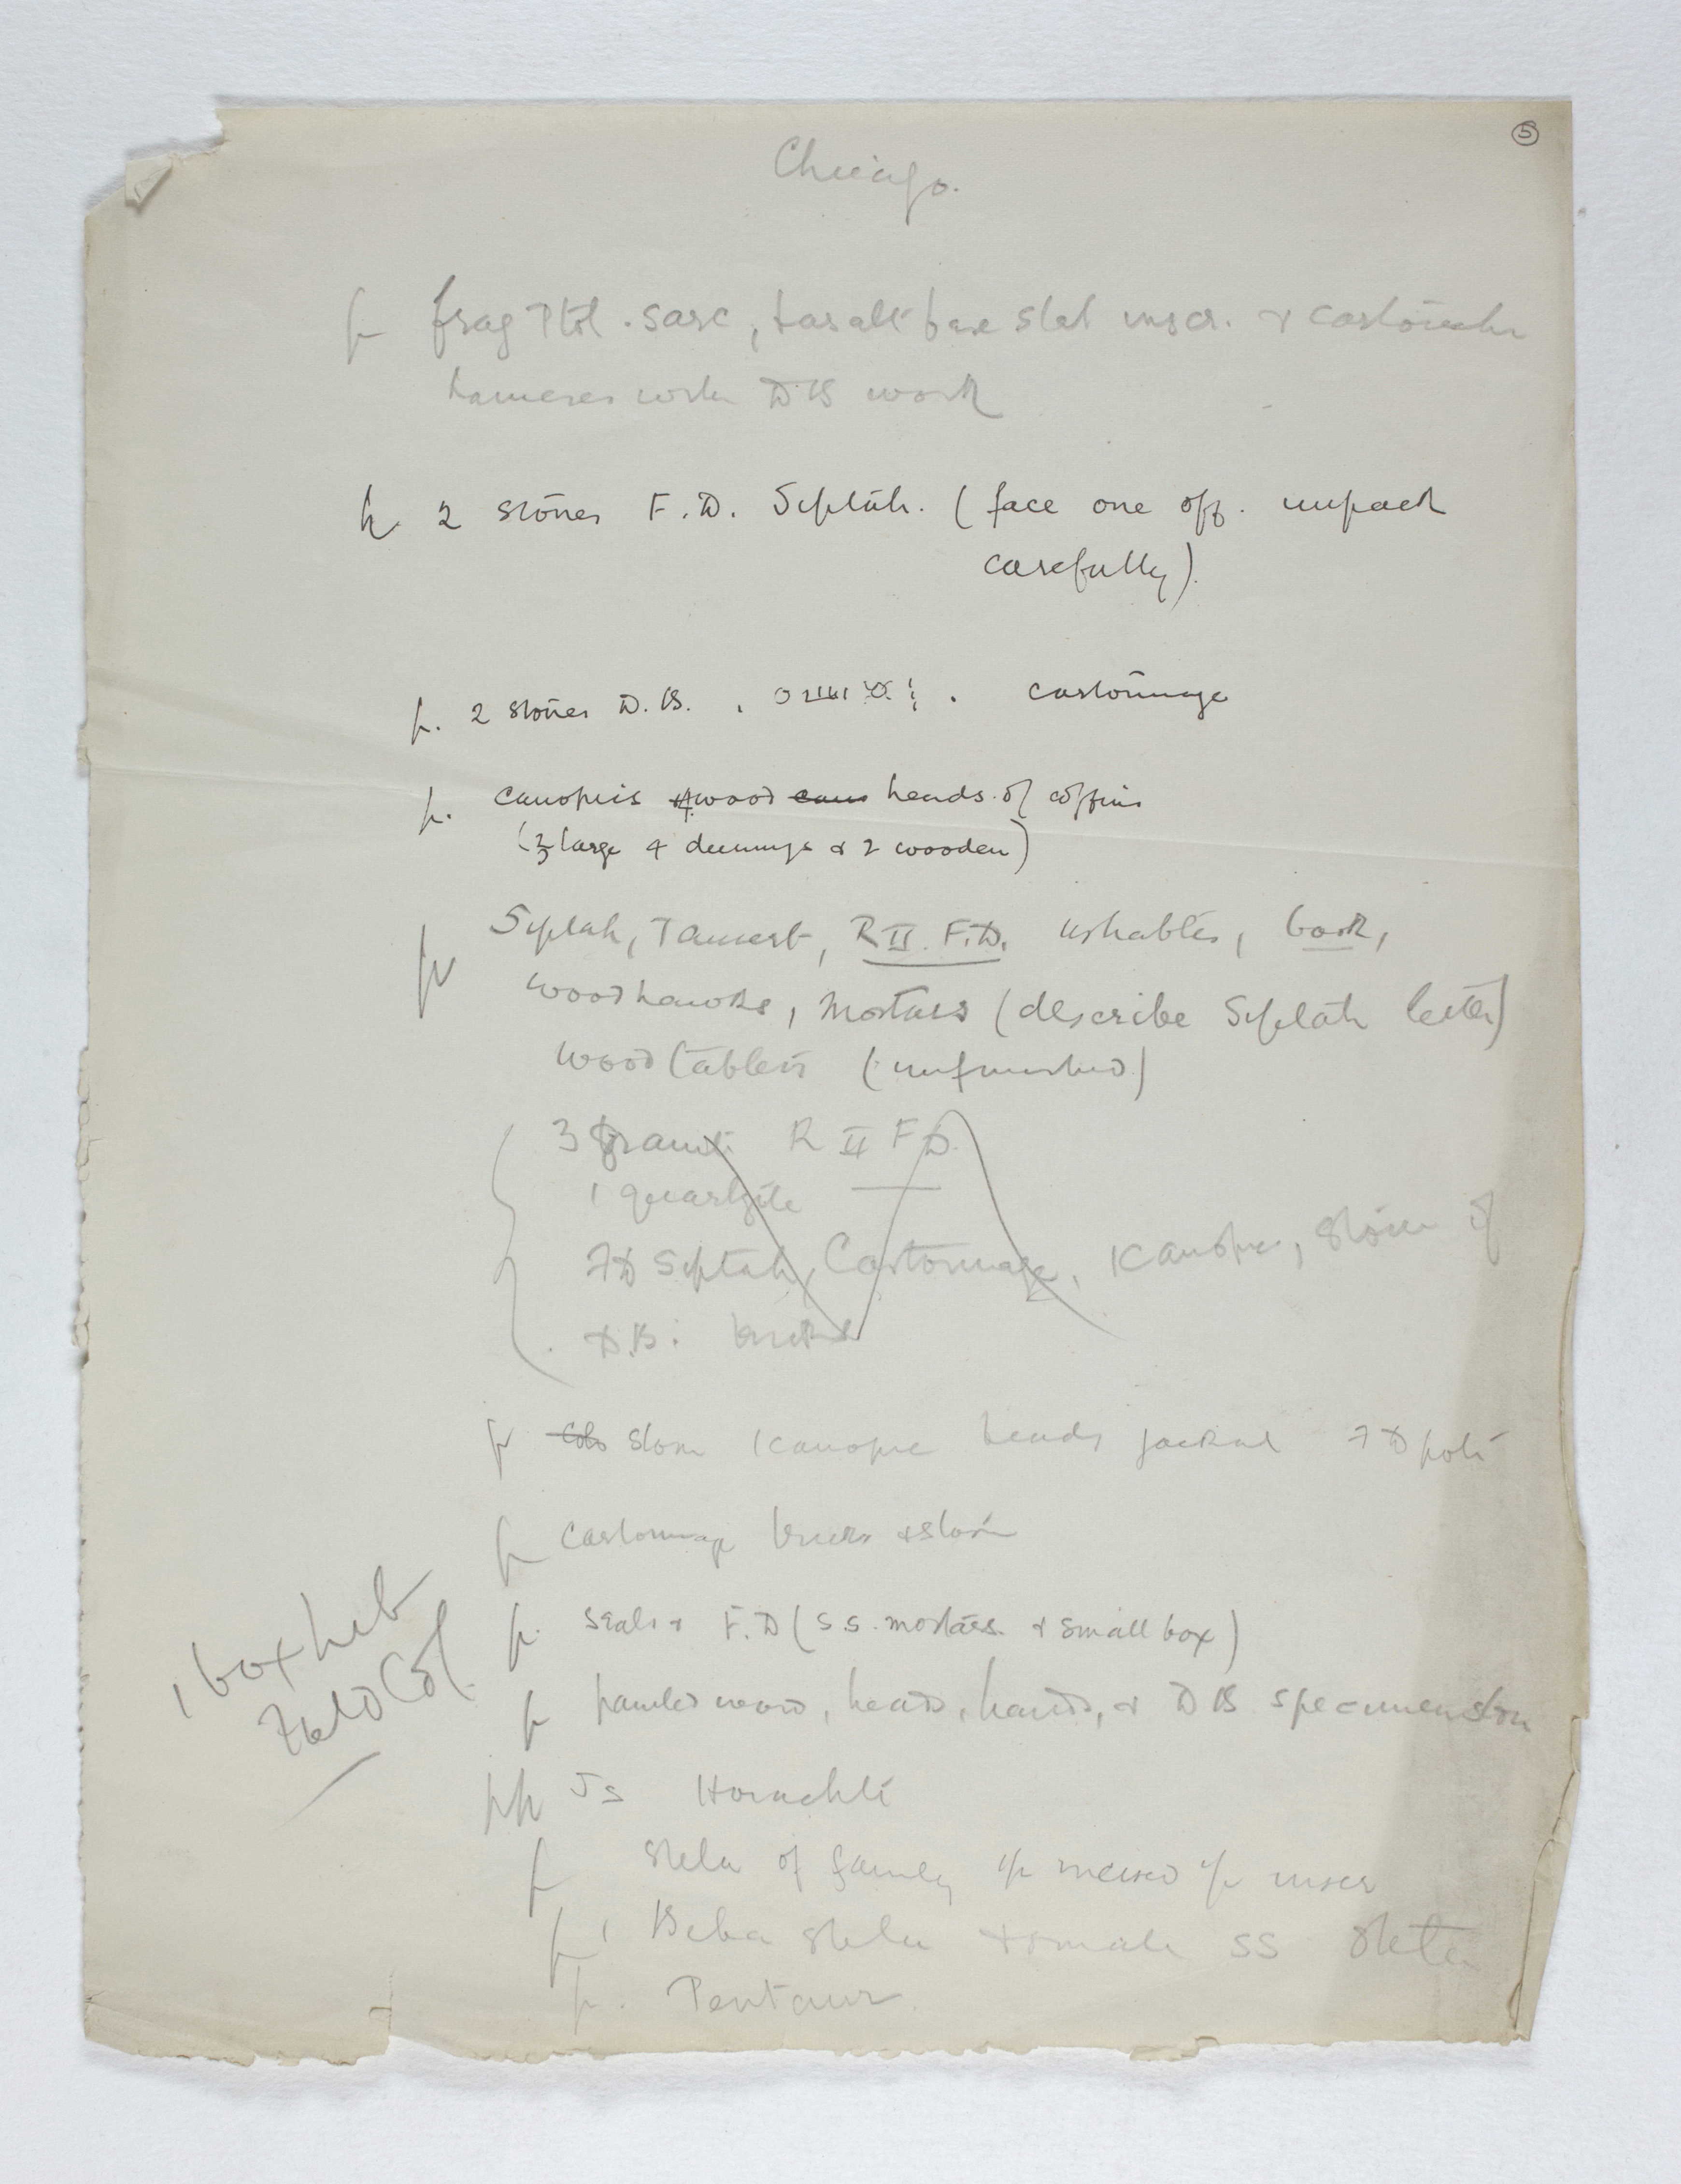 5
Chicago.
p frag Ptol. sarc, basalt base slab inscr. &
hammer with DB work
p. 2 stones F.D. Siptah. (face one off. unpack
carefully).
p. 2 stones D.B. , . cartonnage
p. canopics 4 wood heads of coffins
(3 large 4 dummys & 2 wooden)
p Siptah, Tausert, R II. F.D. ushabtis, book,
wood hawks, mortars (describe Siptah letter)
wood tablets (unfinished)
3 granite R II F D.
1 quartzite
FD Siptah, Cartonnage, Kanopic, stone of
D.B. bricks
p stone Kanopic heads jackal FD pots
p cartonnage bricks & stone
1 box heb
Field Col.
p. seals & F.D (S.S. mortars. & small box)
p painted wood, heads, hands, & DB specimen stone
pp Js Horuchti
p stela of family incised inscr
p 1 Beba stela & small SS stela
p. Pentaur